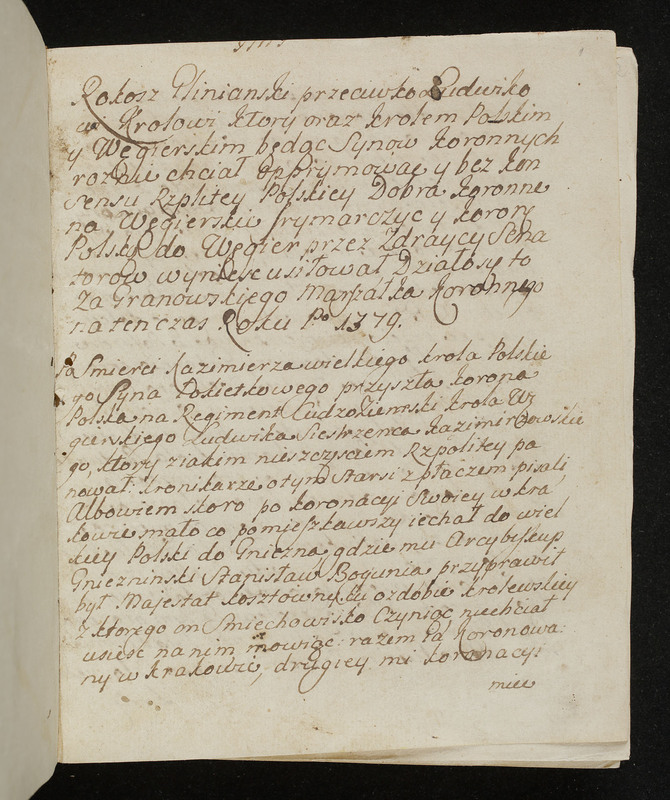 Rokosz Glinianski przeciwko Ludwiko
wi Krolowi ktory oraz krolem Polskim
y Węgierskim będąc Synow koronnych
rożnie chciał opprymować y bez kon
sensu Rzplitey Polskiey Dobra koronne
na Węgierskie frymarczyc y korony
Polskie do Węgier przez Zdraycy Sena
torow wyniesc usiłował Działo sy to
Za Granowskiego Marszałka Koronnego
na ten czas Roku Po 1379.
Po Smierci Kazimierza wielkiego krola Polskie
go Syna Łokietkowego przyszła korona
Polska na Regiment Cudzoziemski krola Wę
gierskiego Ludwika Siestrzenca Kazimierzowskie
go, ktory z iakim nieszczęsciem Rzpolitey pa
nował: kronikarze o tym Starsi z płaczem pisali,
Albowiem skoro po koronacyi Swoiey w kra
kowie mało co pomieszkawszy iechał do wiel
kiey Polski do Gniezna, gdzie mu Arcybiskup
Gniezninski Stanisław Bogunia przyprawił
był Majestat kosztowny ku ozdobie krolewskiey
z ktorego on Smiechowisko Czyniąc, niechciał
usiesc na nim mowiąc: razem ia koronowa:
ny w krakowie, drugiey mi koronacyi
miee